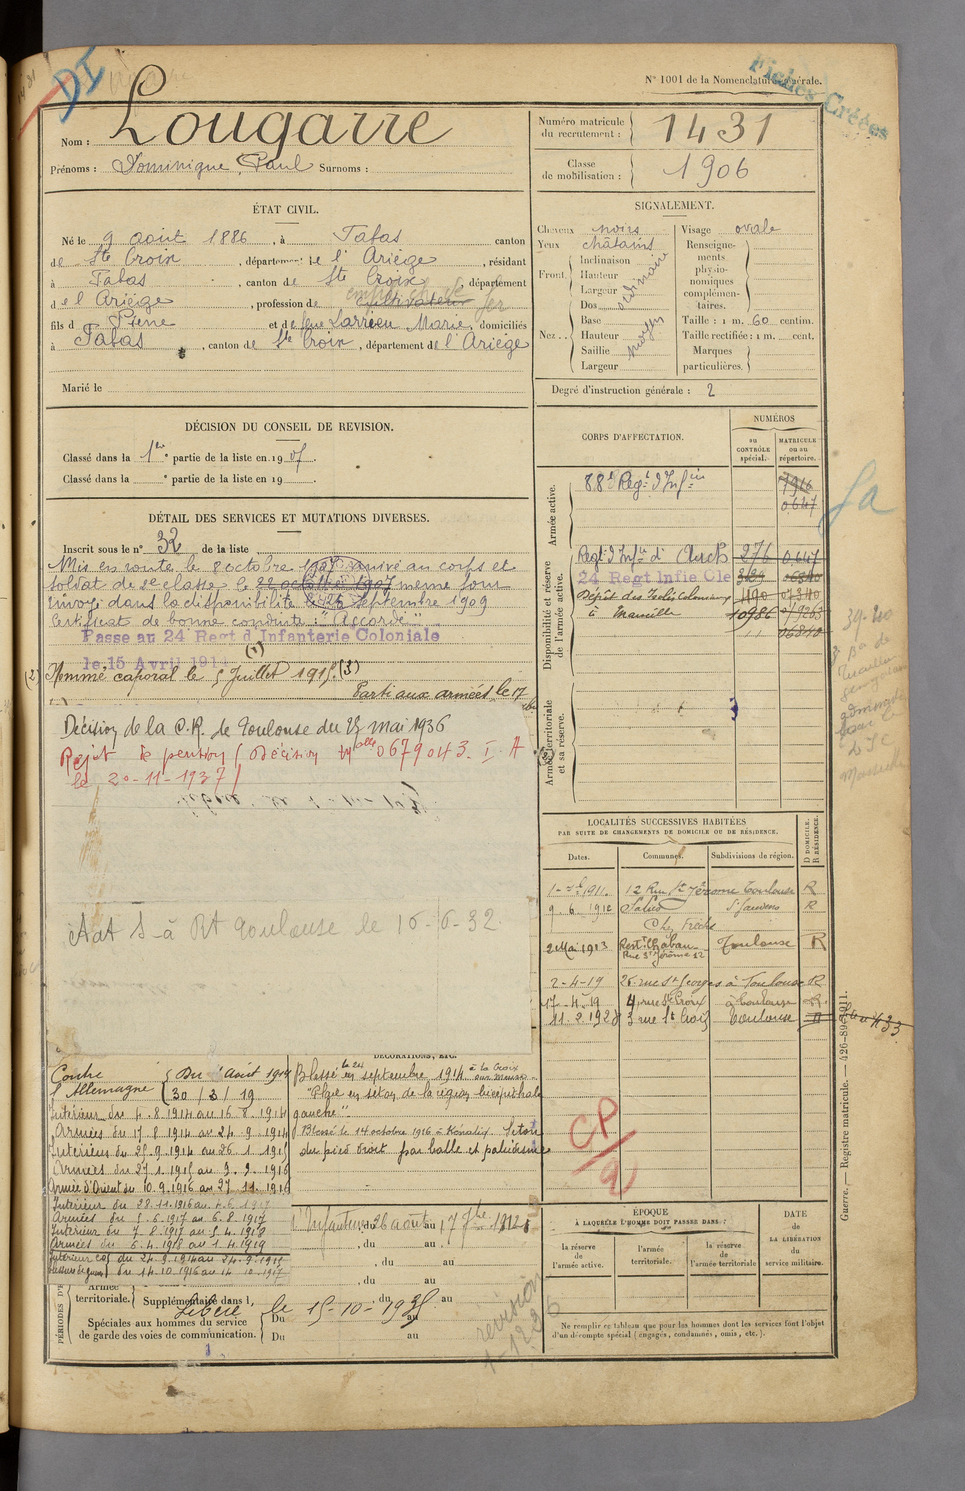 N° 1001 de la Nomenclature générale.
Fiches Créées
DI
Nom : Lougarre
Prénoms : Dominique, Paul Surnoms :
Numéro matricule du recrutement : 1431
Classe de mobilisation : 1906
ÉTAT CIVIL.
Né le 9 août 1886, à Tabas canton
de Ste Croix, département de l'Ariège, résidant
à Tabas, canton de Ste Croix, département
de l'Ariège, profession de cultivateur
fils d Pierre et de feue Larrieu Marie, domiciliés
à Tabas, canton de Ste Croix, département de l'Ariège
Marié le
SIGNALEMENT.
Cheveux noirs
Yeux châtains
Front. Inclinaison
Hauteur
Largeur
ordinaire
Nez. Dos
Base
Hauteur
Saillie
Largeur
moyen
Visage ovale
Renseignements physionomiques complémentaires.
Taille : 1 m. 60 centim.
Taille rectifiée : 1 m. cent.
Marques particulières.
Degré d'instruction générale : 2
DÉCISION DU CONSEIL DE REVISION.
Classé dans la 1re partie de la liste en 1907.
Classé dans la ° partie de la liste en 19 .
DÉTAIL DES SERVICES ET MUTATIONS DIVERSES.
Inscrit sous le n° 32 de la liste
Mis en route le 8 octobre 1907 arrivé au corps et
soldat de 2e classe le 22 octobre 1907 même jour
envoyé dans la disponibilité le 25 septembre 1909
Certificat de bonne conduite : "Accordé"
Passe au 24 Regt d'Infanterie Coloniale
le 15 Avril 1914 (1)
(2) Nommé caporal le 5 Juillet 1915. (3)
Parti aux armées le 17
Décision de la C.R. de Toulouse du 25 mai 1936
Rejet de pension (Décision Mlle 0679043. I. A
le 20-11-1937)
à Rt Toulouse le 16-6-32.
CORPS D'AFFECTATION.
NUMÉROS
AU CONTRÔLE spécial.
MATRICULE ou au répertoire.
Armée active.
88e Regt d'Infie
1916
0647
Disponibilité et réserve de l'armée active.
Regt d'Infie d'Auch 276 0647
24 Regt Infie Cle 3829 06840
Dépôt des Isolés Coloniaux 490 07340
à Marseille 10986 0/9263
" 06840
Armée territoriale et sa réserve.
LOCALITÉS SUCCESSIVES HABITÉES
PAR SUITE DE CHANGEMENTS DE DOMICILE OU DE RÉSIDENCE.
Dates. Communes. Subdivisions de région. D DOMICILE. R RÉSIDENCE.
1911. 12 Rue St Jérome Toulouse R
9-6-1912 Salies St Gaudens R
2 Mai 1913 Chaban Toulouse R
Rue St Jérôme 12
2-4-19 25 rue St Georges à Toulouse R
17-4-19 4, rue Ste Croix à Toulouse R
11-2-1928 3 rue Ste Croix Toulouse
DÉCORATIONS, ETC.
Contre l'Allemagne
Du Août 1914
30/3/19
Intérieur du 4.8.1914 au 16.8.1914
Armées du 17.8.1914 au 24.9.1914
Intérieur du 25.9.1914 au 26.1.1915
Armées du 27.1.1915 au 9.9.1916
Armée d'Orient du 10.9.1916 au 27.11.1916
Intérieur du 28.11.1916 au 4.6.1917
Armées du 5.6.1917 au 6.8.1917
Intérieur du 7.8.1917 au 5.4.1918
Armées du 6.4.1918 au 1.4.1919
Intérieur du 24.9.1914 au 24.9.1915
du 14.10.1916 au 14.10.1917
Blessé le 24 septembre 1914 à la Croix sur Meuse
"Plaie en séton de la région bicipitale
gauche".
Blessé le 14 octobre 1916 à Kénali. Séton
du pied droit par balle et paludisme
l'Infanterie, du 26 août au 17 7bre 1912
, du au
, du au
, du au
Armée territoriale. Supplémentaire dans l , du au
Libéré le 15-10-1935
PÉRIODES
Spéciales aux hommes du service de garde des voies de communication. Du au
Du au
revision
CP
ÉPOQUE
À LAQUELLE L'HOMME DOIT PASSER DANS :
la réserve de l'armée active.
l'armée territoriale.
la réserve de l'armée territoriale
DATE de LA LIBÉRATION du service militaire.
Ne remplir ce tableau que pour les hommes dont les services font l'objet
d'un décompte spécial (engagés, condamnés, omis, etc.).
Guerre. — Registre matricule. — 426-89-1911.